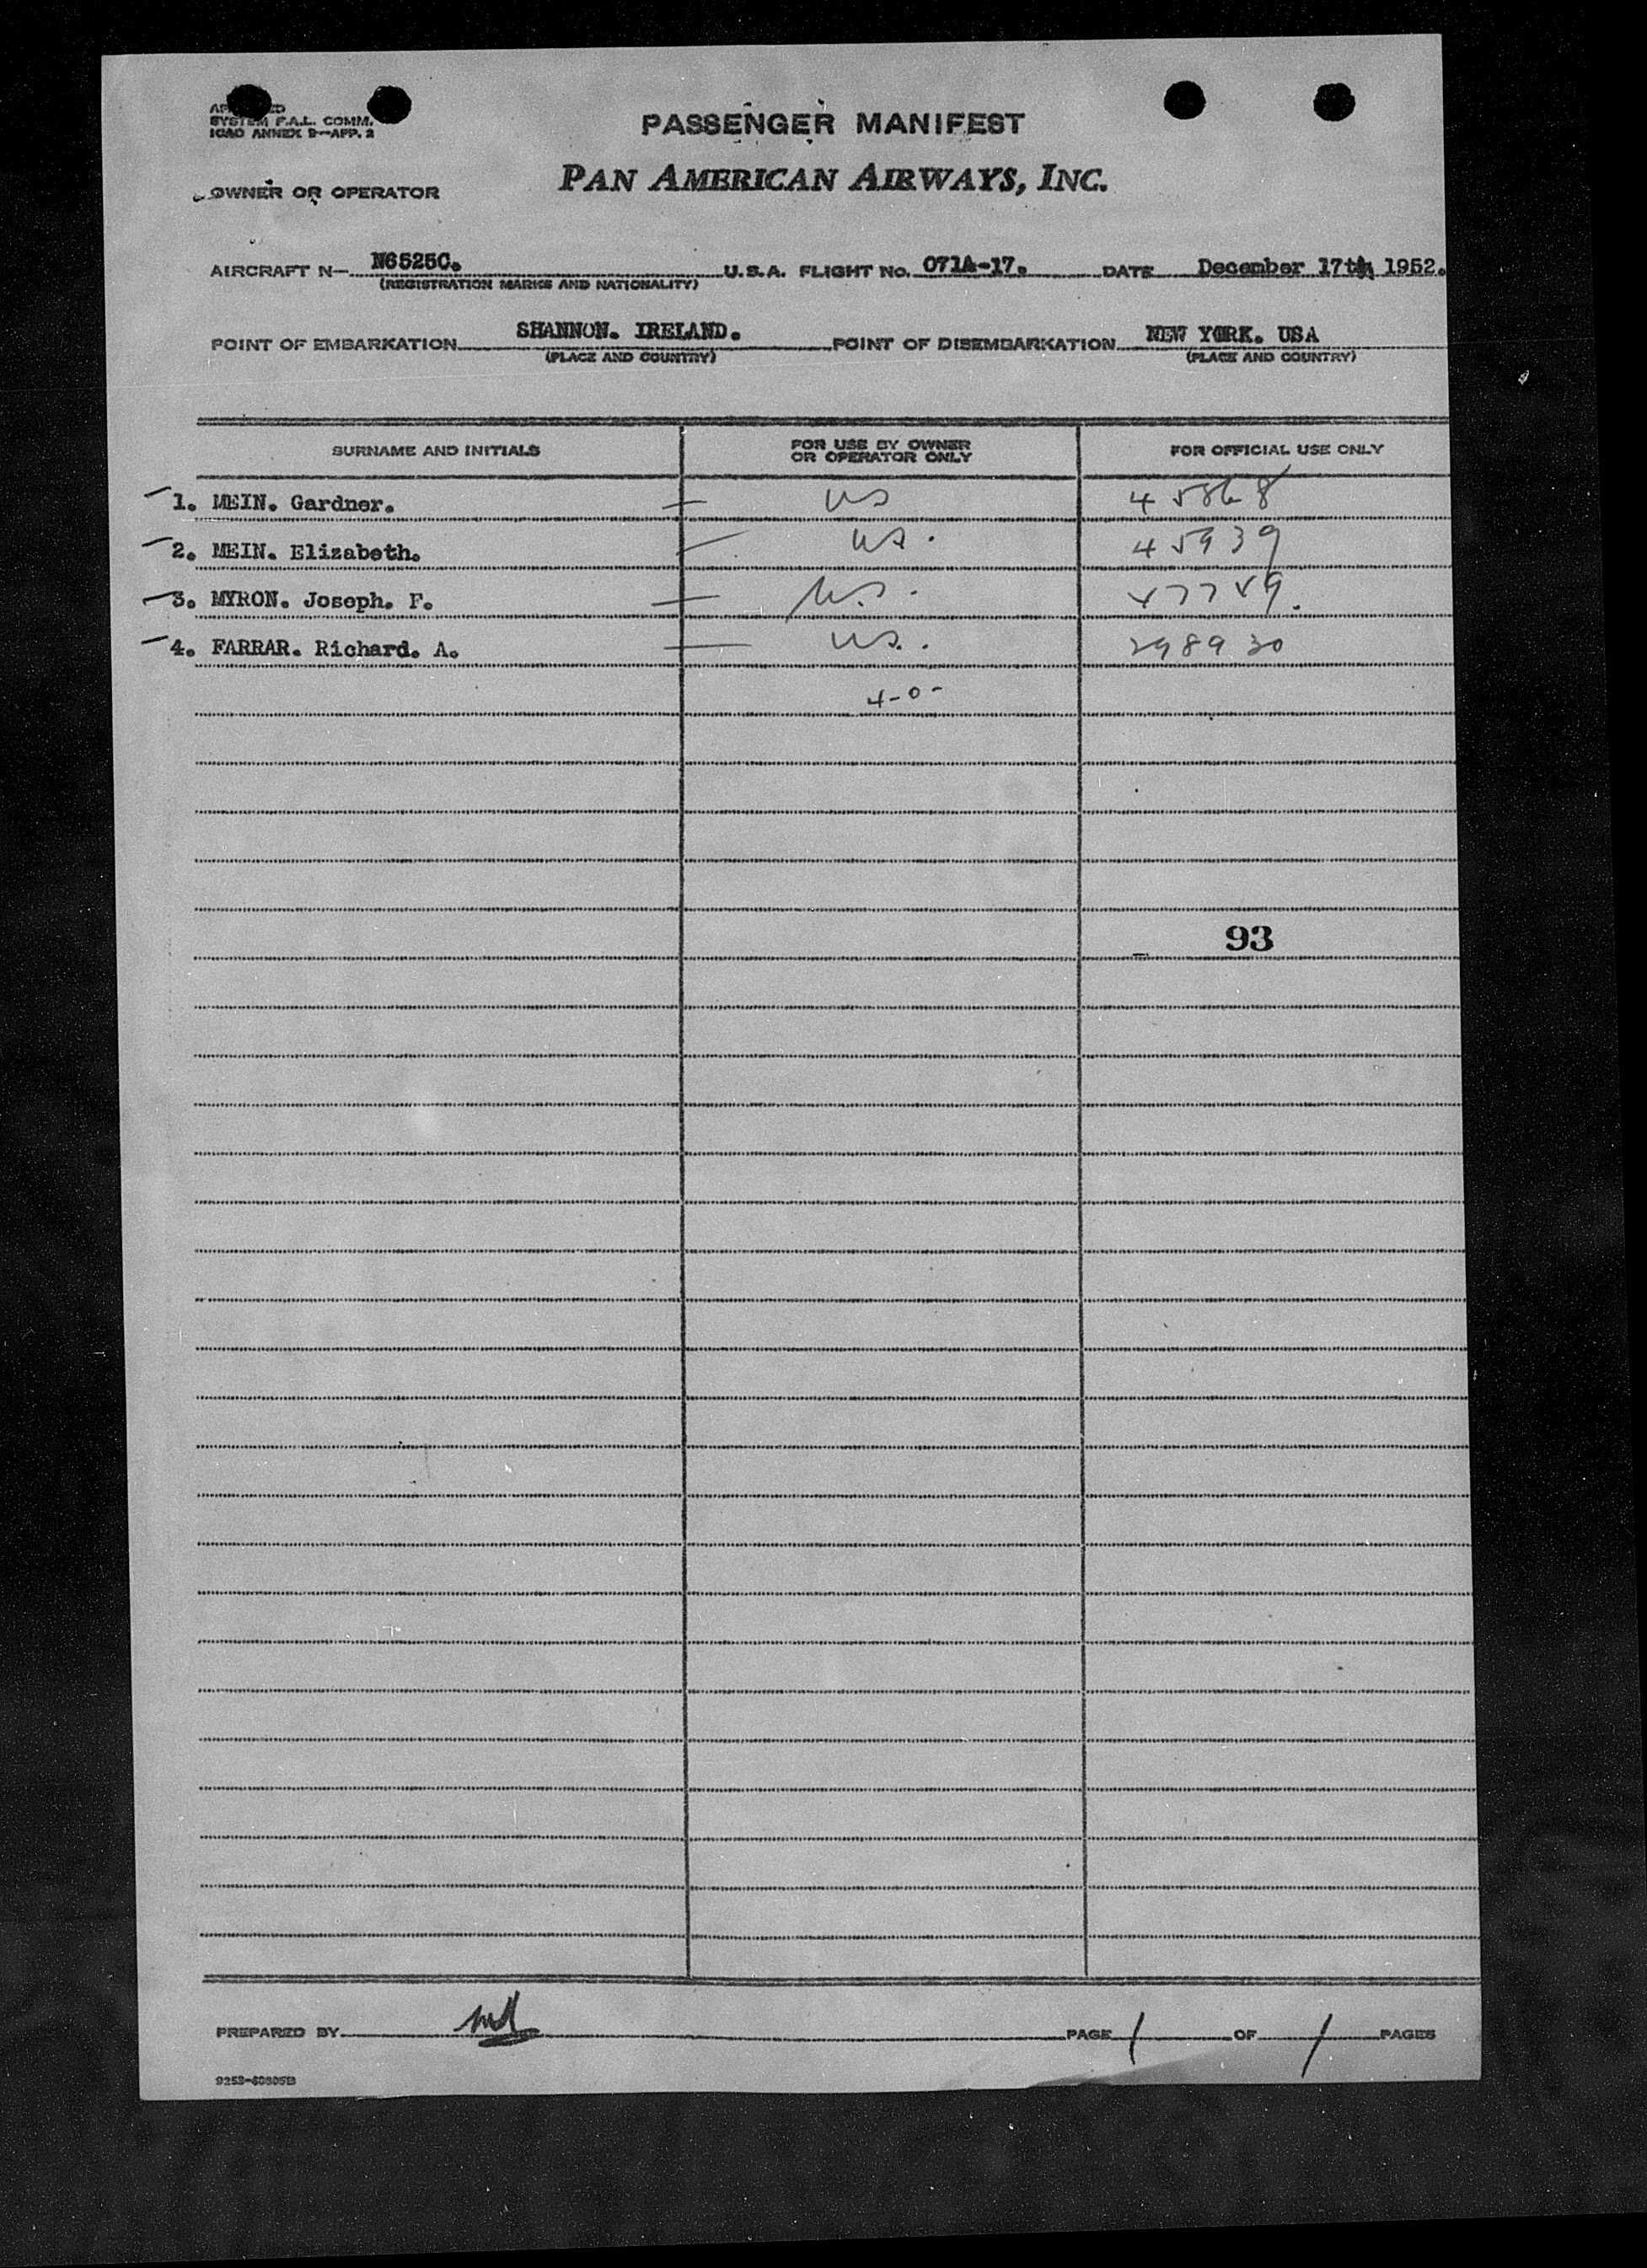 SYSTEM F.A.L. COMM.
ICAO ANNEX 9—APP. 2
PASSENGER MANIFEST
OWNER OR OPERATOR PAN AMERICAN AIRWAYS, INC.
AIRCRAFT N— N6525C. U.S.A. FLIGHT NO. 071A-17. DATE December 17th 1952.
(REGISTRATION MARKS AND NATIONALITY)
POINT OF EMBARKATION SHANNON. IRELAND. POINT OF DISEMBARKATION NEW YORK. USA
(PLACE AND COUNTRY) (PLACE AND COUNTRY)
SURNAME AND INITIALS FOR USE BY OWNER OR OPERATOR ONLY FOR OFFICIAL USE ONLY
1. MEIN. Gardner. — US 45868
2. MEIN. Elizabeth. — US. 45939
3. MYRON. Joseph. F. — U.S.
4. FARRAR. Richard. A. — US. 298930
4-0-
93
PREPARED BY PAGE 1 OF 1 PAGES